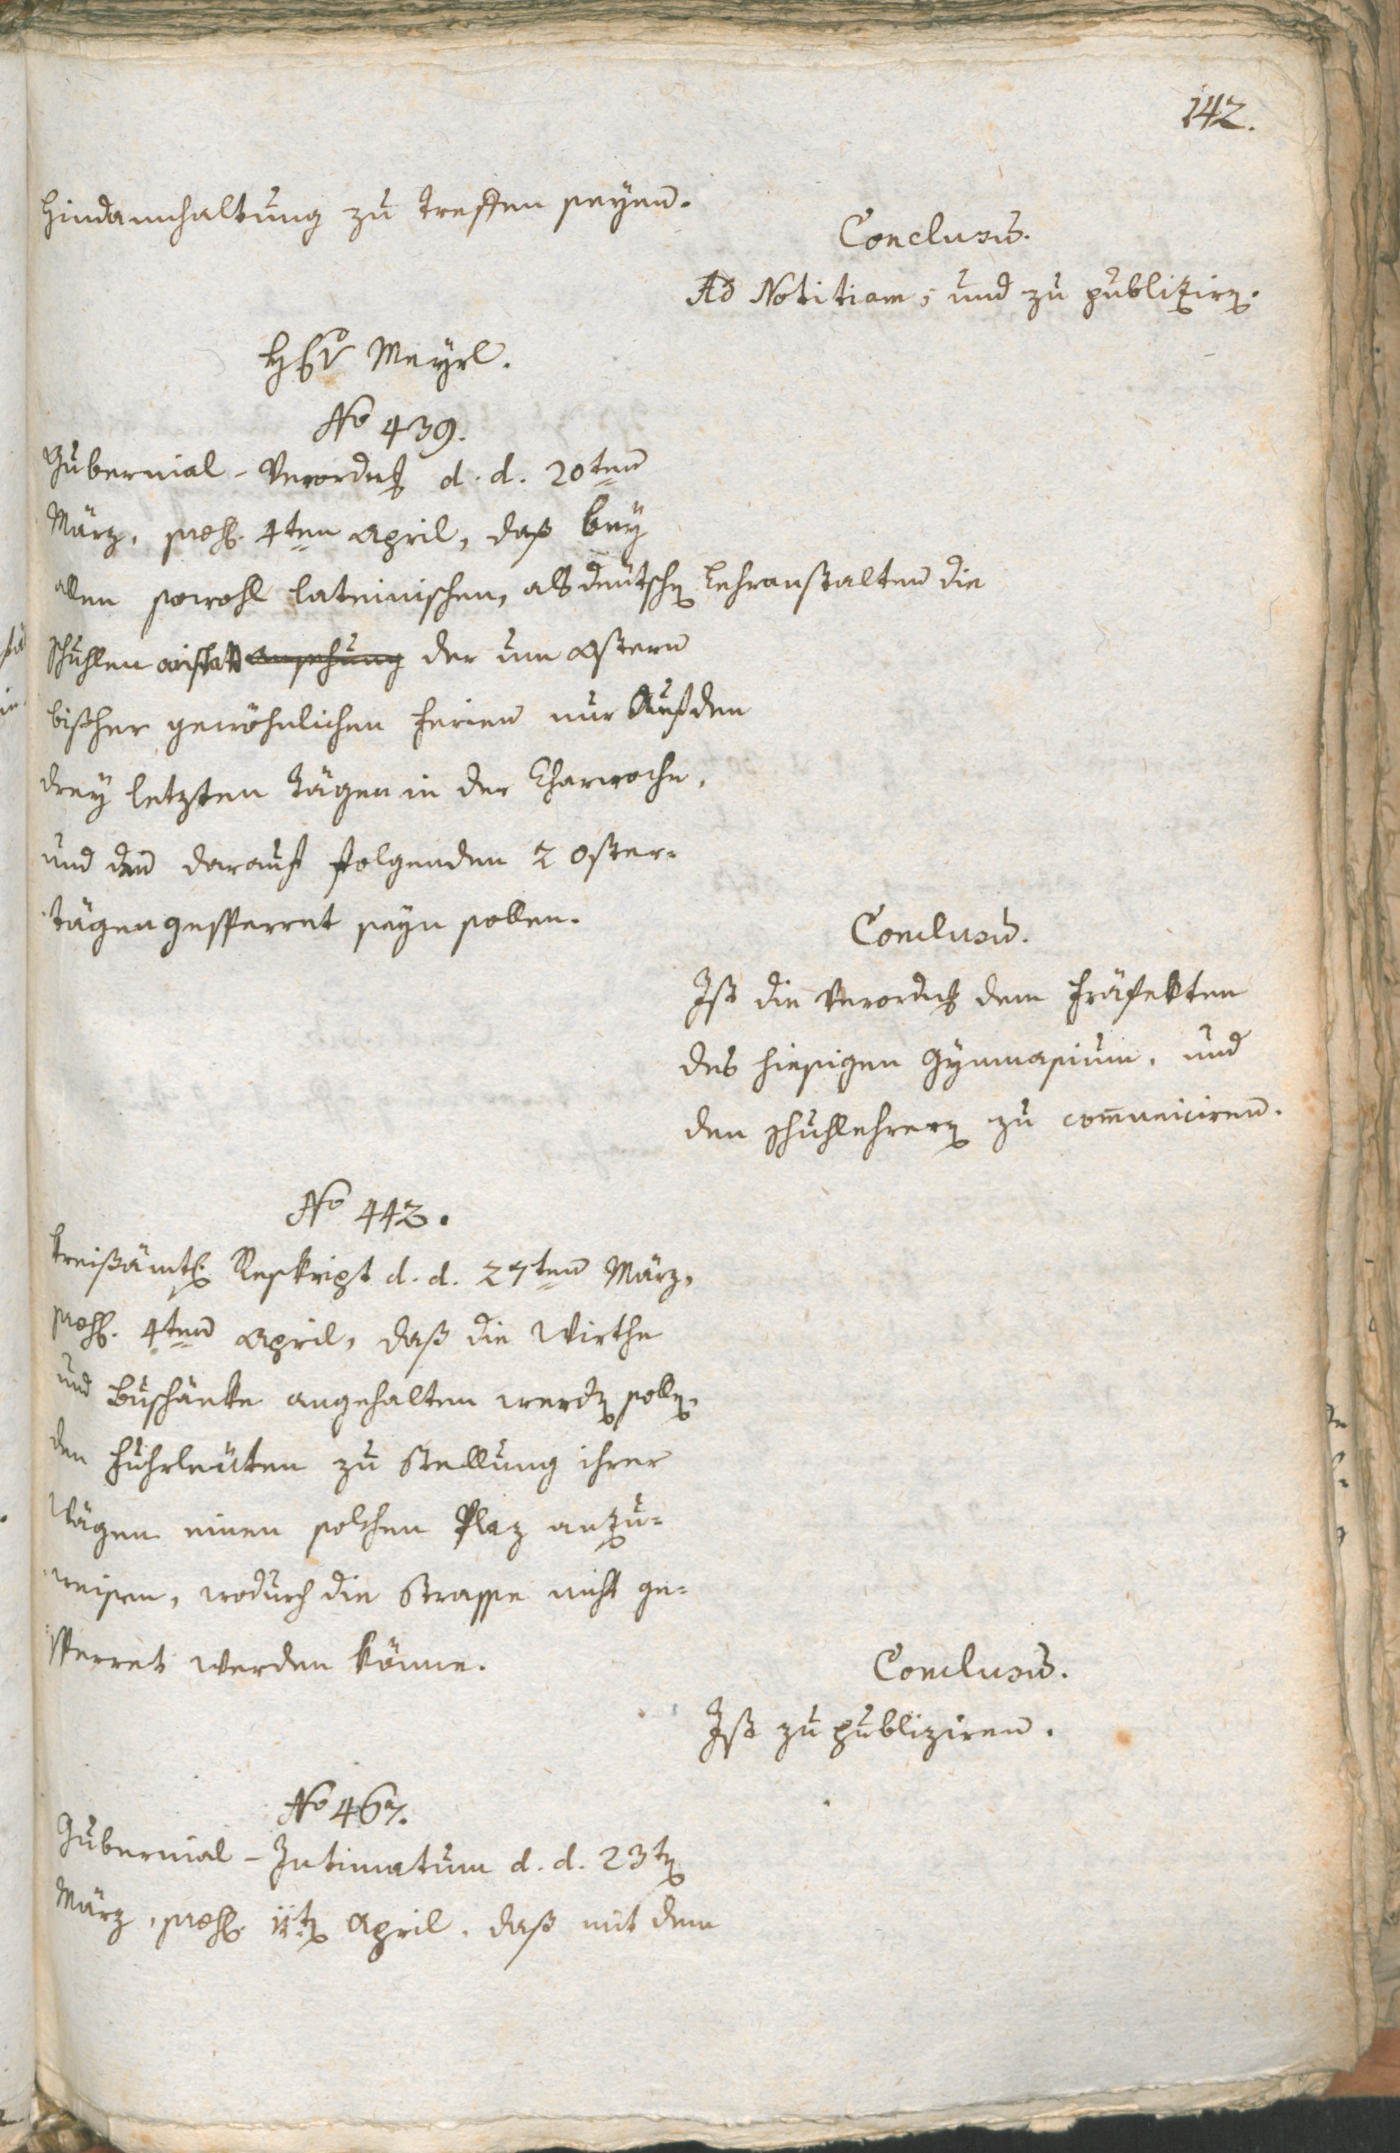 142.
Hindannhaltung zu treffen seyen.
Conclusū.
Ad Notitiam, und zu publizirn.
Hr Meyrl.
No 439.
Gubernial-Verordng d. d. 20ten
März, præs. 4ten April, daß bey
allen sowohl lateinischen, als deutschn Lehranstalten die
Schuhlen anstatt ansehung der um Ostern
bißher gewöhnlichen Ferien nur Auf den
drey letzten Tägen in der Charwoche,
und den darauf folgenden 2 Oster-
tägen gesperret seyn sollen.
Conclusū.
Ist die Verordng dem Präfekten
des hiesigen Gymnasium, und
den Schuhllehrern zu com̅uniciren.
No 442.
Kreißämtl. Reskript d. d. 27ten März,
præs. 4ten April, daß die Wirthe
und Buschänke angehalten werdn solln,
den Fuhrleuten zu Stellung ihrer
Wägen einen solchen Plaz anzu-
weisen, wodurch die Strasse nicht ge-
sperret werden könne.
Conclusū.
Ist zu publiziren.
No 467.
Gubernial-Intimatum d. d. 23tn
März, præs. 11tn April, daß mit dem